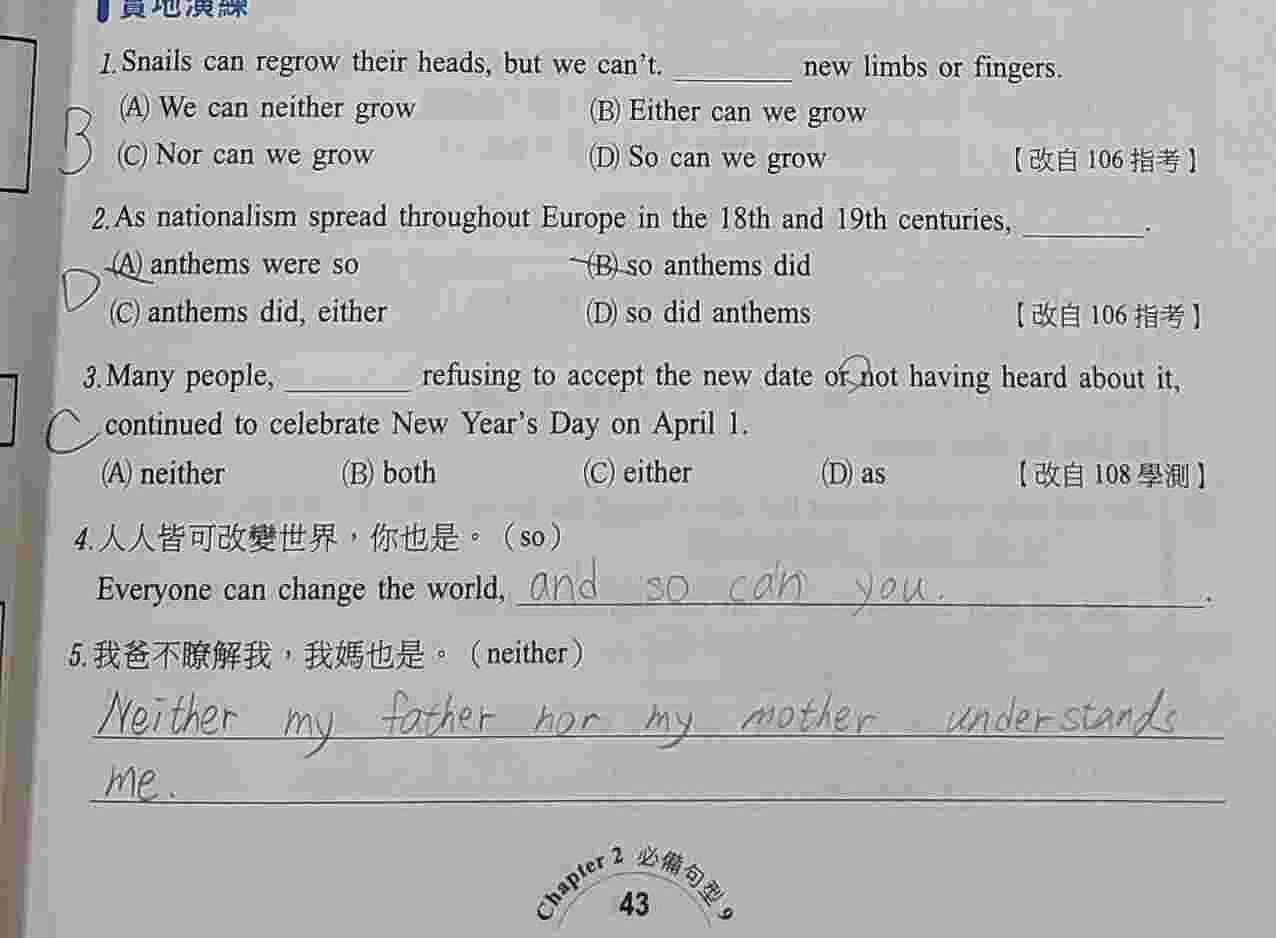 實地演練
1. Snails can regrow their heads, but we can't. ________ new limbs or fingers.
B (A) We can neither grow (B) Either can we grow
(C) Nor can we grow (D) So can we grow 【改自 106 指考】
2. As nationalism spread throughout Europe in the 18th and 19th centuries, ________.
D (A) anthems were so (B) so anthems did
(C) anthems did, either (D) so did anthems 【改自 106 指考】
3. Many people, ________ refusing to accept the new date or not having heard about it,
C continued to celebrate New Year's Day on April 1.
(A) neither (B) both (C) either (D) as 【改自 108 學測】
4. 人人皆可改變世界，你也是。（so）
Everyone can change the world, and so can you. .
5. 我爸不瞭解我，我媽也是。（neither）
Neither my father nor my mother understands
me.
Chapter 2 必備句型 9
43